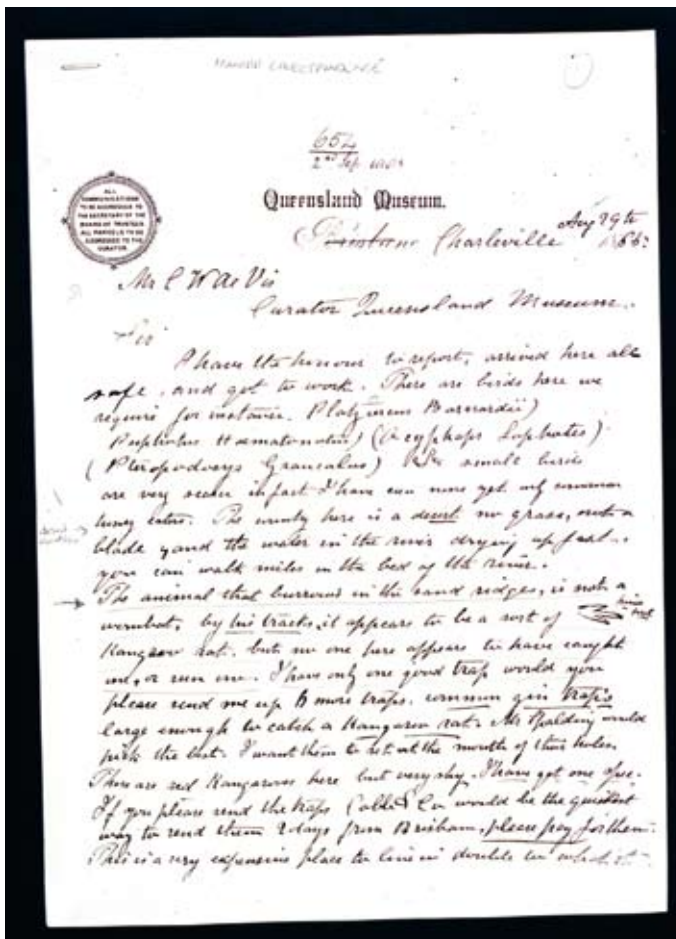 654
2nd Sep
Queensland Museum.
ALL
COMMUNICATIONS
TO BE ADDRESSED TO
THE SECRETARY OF THE
BOARD OF TRUSTEES
ALL PARCELS TO BE
ADDRESSED TO THE
CURATOR
Charleville Aug 29th
Mr C W de Vis
Curator Queensland Museum.
Sir
I have the honour to report, arrived here all
safe, and got to work. There are birds here we
require for instance. Platycercus Barnardii)
Psephotus Haematonotus) (Ocyphaps Lophotes)
(Pteropodocys small birds
are very in fact I have seen none yet only common
honey eaters. The country here is a desert no grass, not a
blade and the water in the river drying up fast.
you can walk miles in the bed of the river.
The animal that burrows in the sand ridges, is not a
wombat, by his tracks, it appears to be a sort of
Kangaroo rat. but no one here appears to have caught
one, or seen one. I have only one good trap would you
please send me up 6 more traps. common gin traps
large enough to catch a Kangaroo rat. Mr Spalding would
pick the best. I want them to set at the mouth of their holes.
There are red Kangaroos here but very shy. I have got one
If you please send the traps Cobb & Co would be the quickest
way to send them 2 days from Brisbane, please pay for them.
This is a very expensive place to live in double